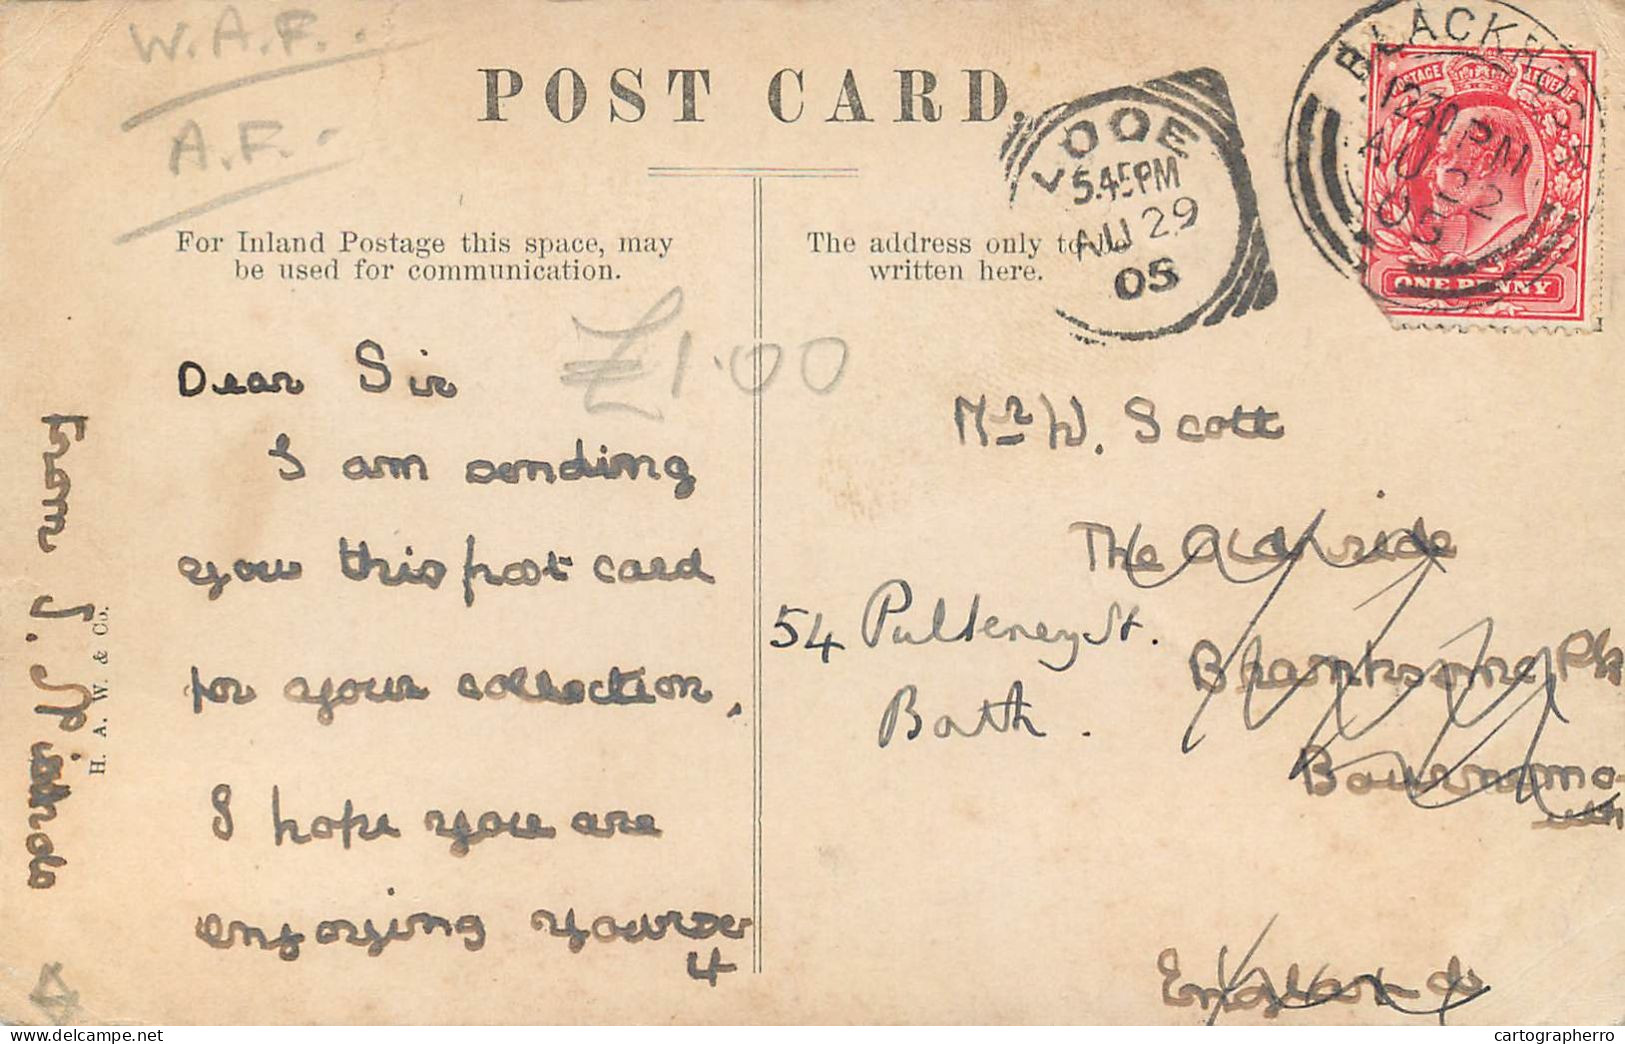 W.A.F.
A.F.
POST CARD.
LOOE
5.45PM
AU 29
05
BLACKROCK
1230PM
AU 22
05
POSTAGE REVENUE
ONE PENNY
For Inland Postage this space, may
be used for communication.
The address only to be
written here.
£1.00
Dear Sir
I am sending
you this post card
for your collection.
I hope you are
enjoying your
4
From J.
H. A. W. & Co.
Mr W. Scott
The
Branksome Pk
Bournemo-
uth
England
54 Pulteney St.
Bath.
cartographerro